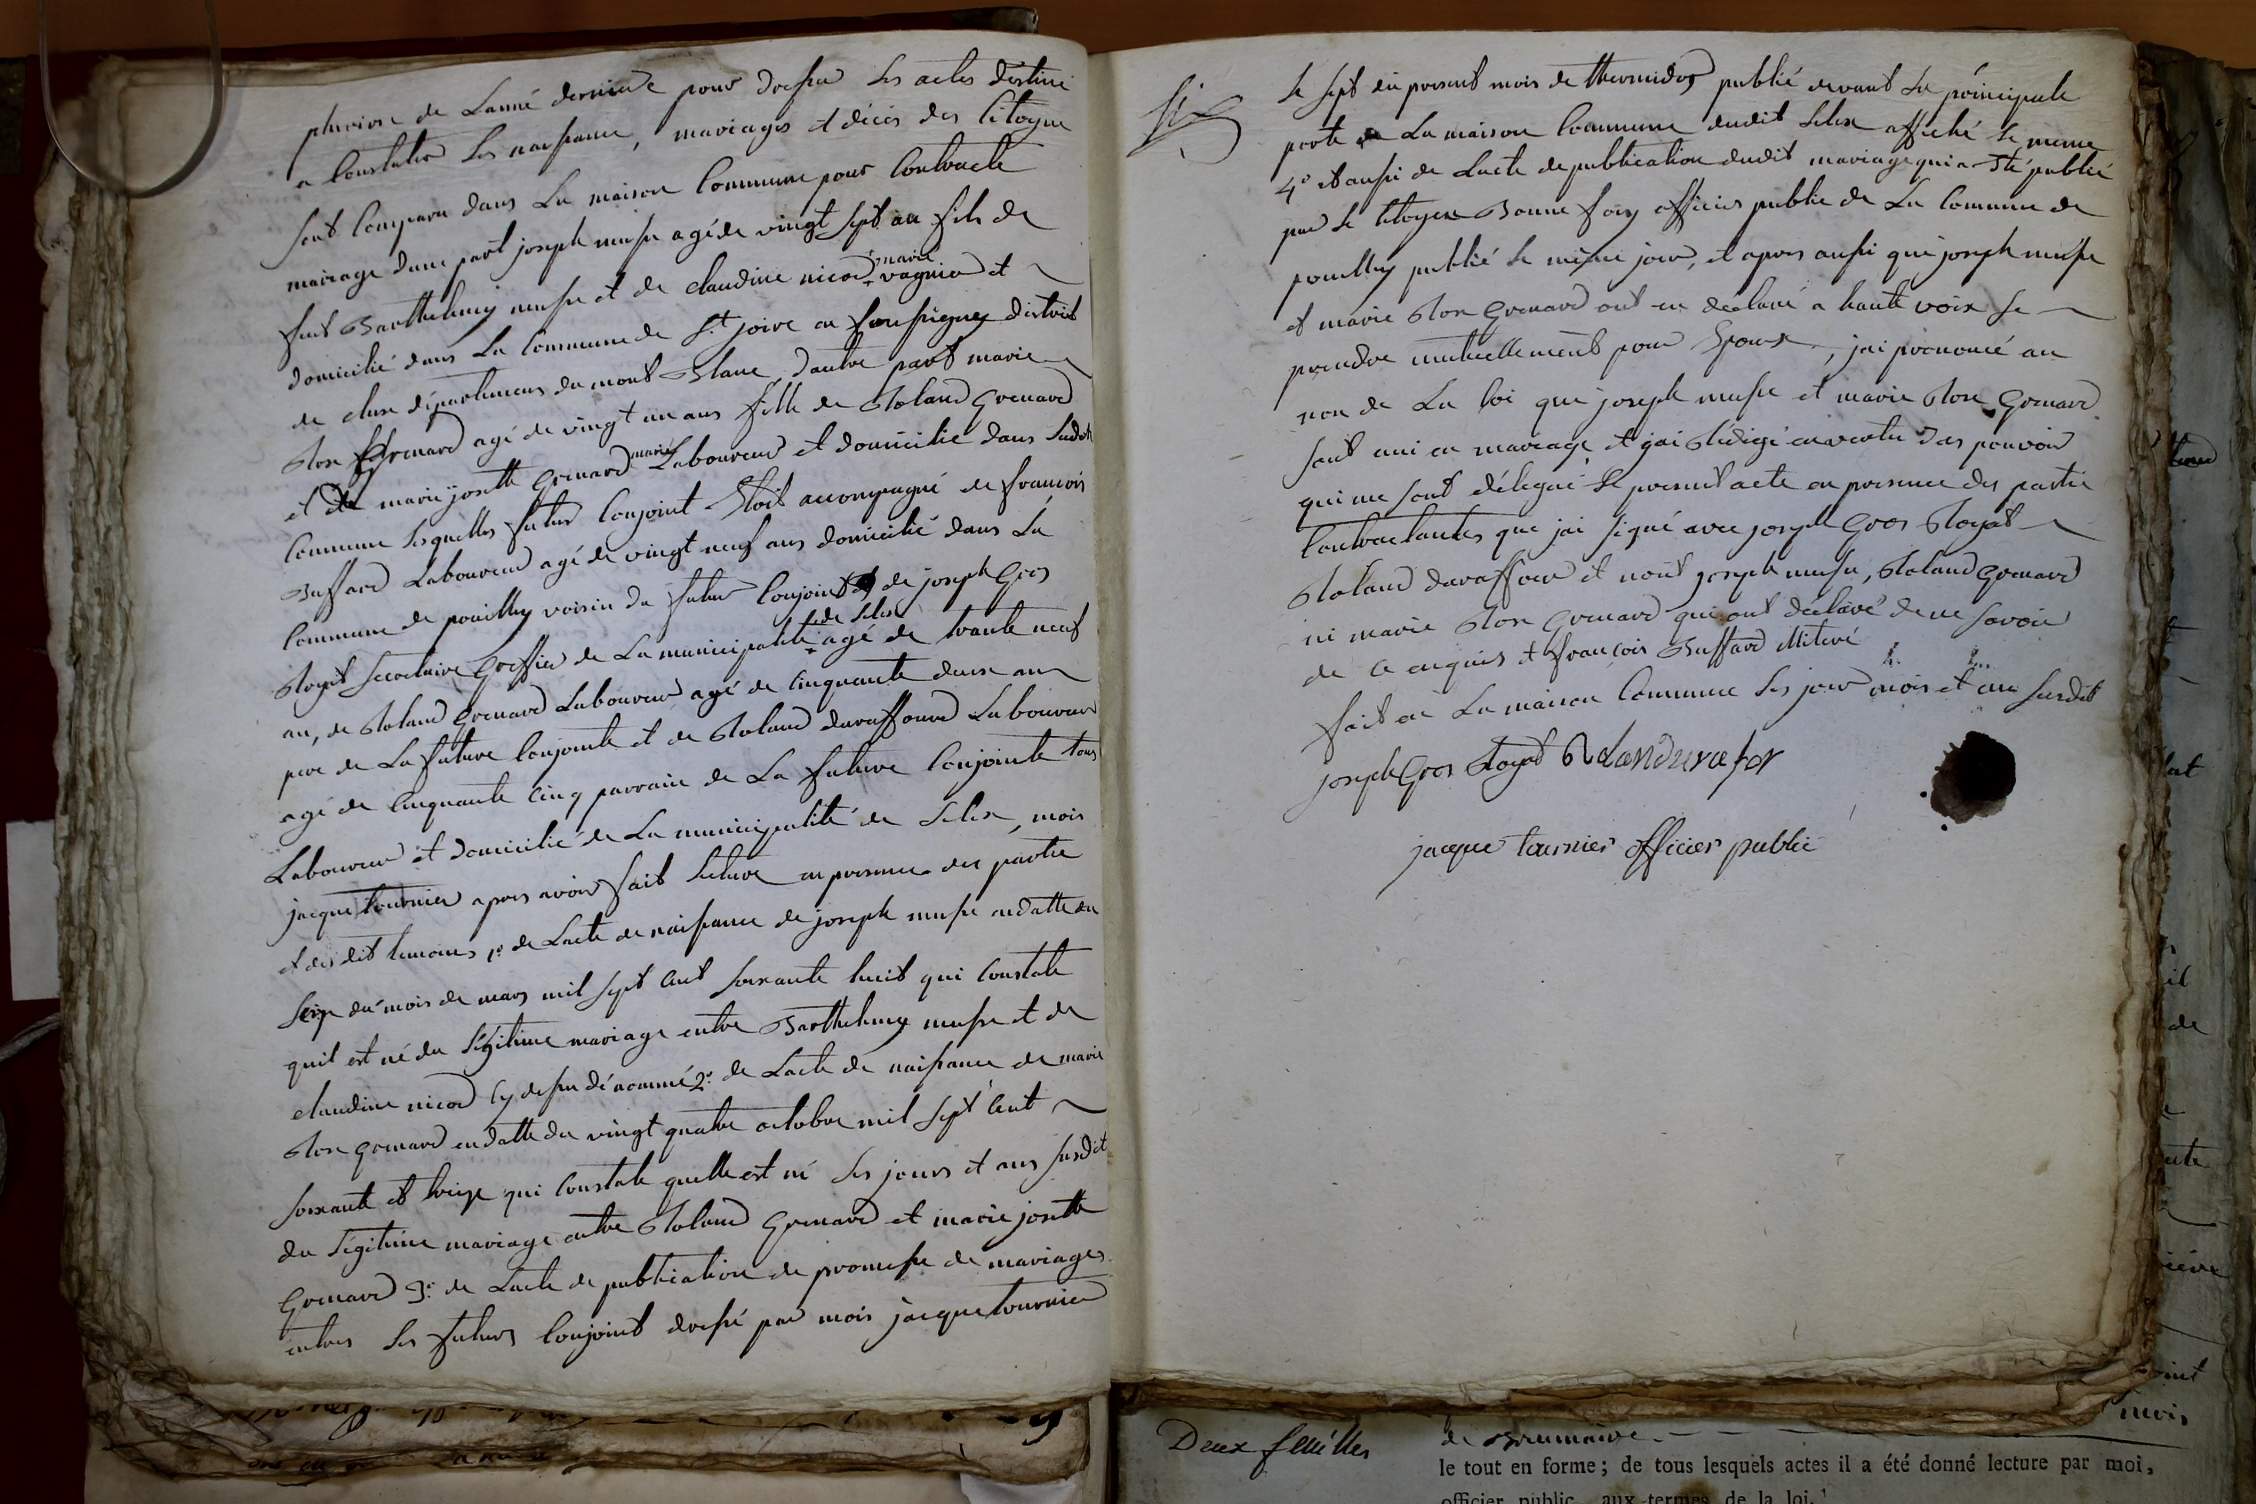 pluviose de Lanné derniere pour dresser les actes destiné
a Constater les naissance, mariages et décès des Citoyens
sont Comparu dans La maison Commune pour Contracte
mairage dune part joseph musse agé de vingt sept an fils de
feut Barthelemy musse et de claudine nicod marie vagnier et
domicilié dans La Commune de St joire en faussigney district
de cluse département du mont Blanc, dautre part marie
Rose Grenard agé de vingt un ans fille de Roland Grenard
et de marie josette Grenard marié Laboureur et domicilie dans laditte
Commune lesquelles futur Conjoint Etoit accompagné de francois
Buffard Laboureur agé de vingt neuf ans domicilié dans La
Commune de pouilley voisin du futur Conjoint de joseph Gros
Royat Secretaire Greffier de La municipalité de Silex agé de trante neuf
an, de Roland Grenard Laboureur agé de Cinquante deux an
pere de La future Conjointe et de Roland duraffourd Laboureur
agé de Cinquante Cinq parrain de La future Conjointe tous
Laboureur et domicilié de La municipalité de Silex, mois
jacque tournier apres avoir fait lecture en presence des partie
et des dit temoins 1º de Lacte de naissance de joseph musse en datte du
seize du mois de mars mil sept Cent soixante huit qui Constate
quil est né du légitime mariage entre Barthelemy musse et de
claudine nicod Cy dessu dénommé 2º de Lacte de naissance de marie
Rose grenard en datte du vingt quatre octobre mil sept Cent
soixante et treize qui Constate quelle est né les jours et ans susdit
du légitime mariage entre Roland Grenard et marie josette
Grenard 3º de Lacte de publication de promesse de mariages
entres les futurs Conjoint dressé par mois jacque tournier
le sept du present mois de thermidor publié devant La principale
porte de La maison Commune dudit Silex affiché le meme
4º et aussi de Lacte de publication dudit mariage qui a Eté publié
par le Citoyen Bonne foy officier public de La Commune de
pouilley publié le même jour, et apres aussi que joseph musse
et marie Rose Grenard ont en declaré a haute voix se
prendre mutuellement pour Epoux, jai prononcé au
non de La loi que joseph musse et marie Rose Grenard
sont uni en mariage et jai Rédigé en vertu des pouvoir
qui me sont délegué le present acte en presence des partie
Contractantes que jai signé avec joseph Gros Royat
Roland duraffour et nont joseph musse, Roland Grenard
ni marie Rose Grenard qui ont déclaré de ne savoir
de ce enquis et francois Buffard
fait en La maison Commune les jour mois et an susdit
joseph Gros Royat Rolanduraffor
jacque tournier officier public
Deux feuilles
de Brumaire
mois
le tout en forme; de tous lesquels actes il a été donné lecture par moi,
officier public, aux termes de la loi.